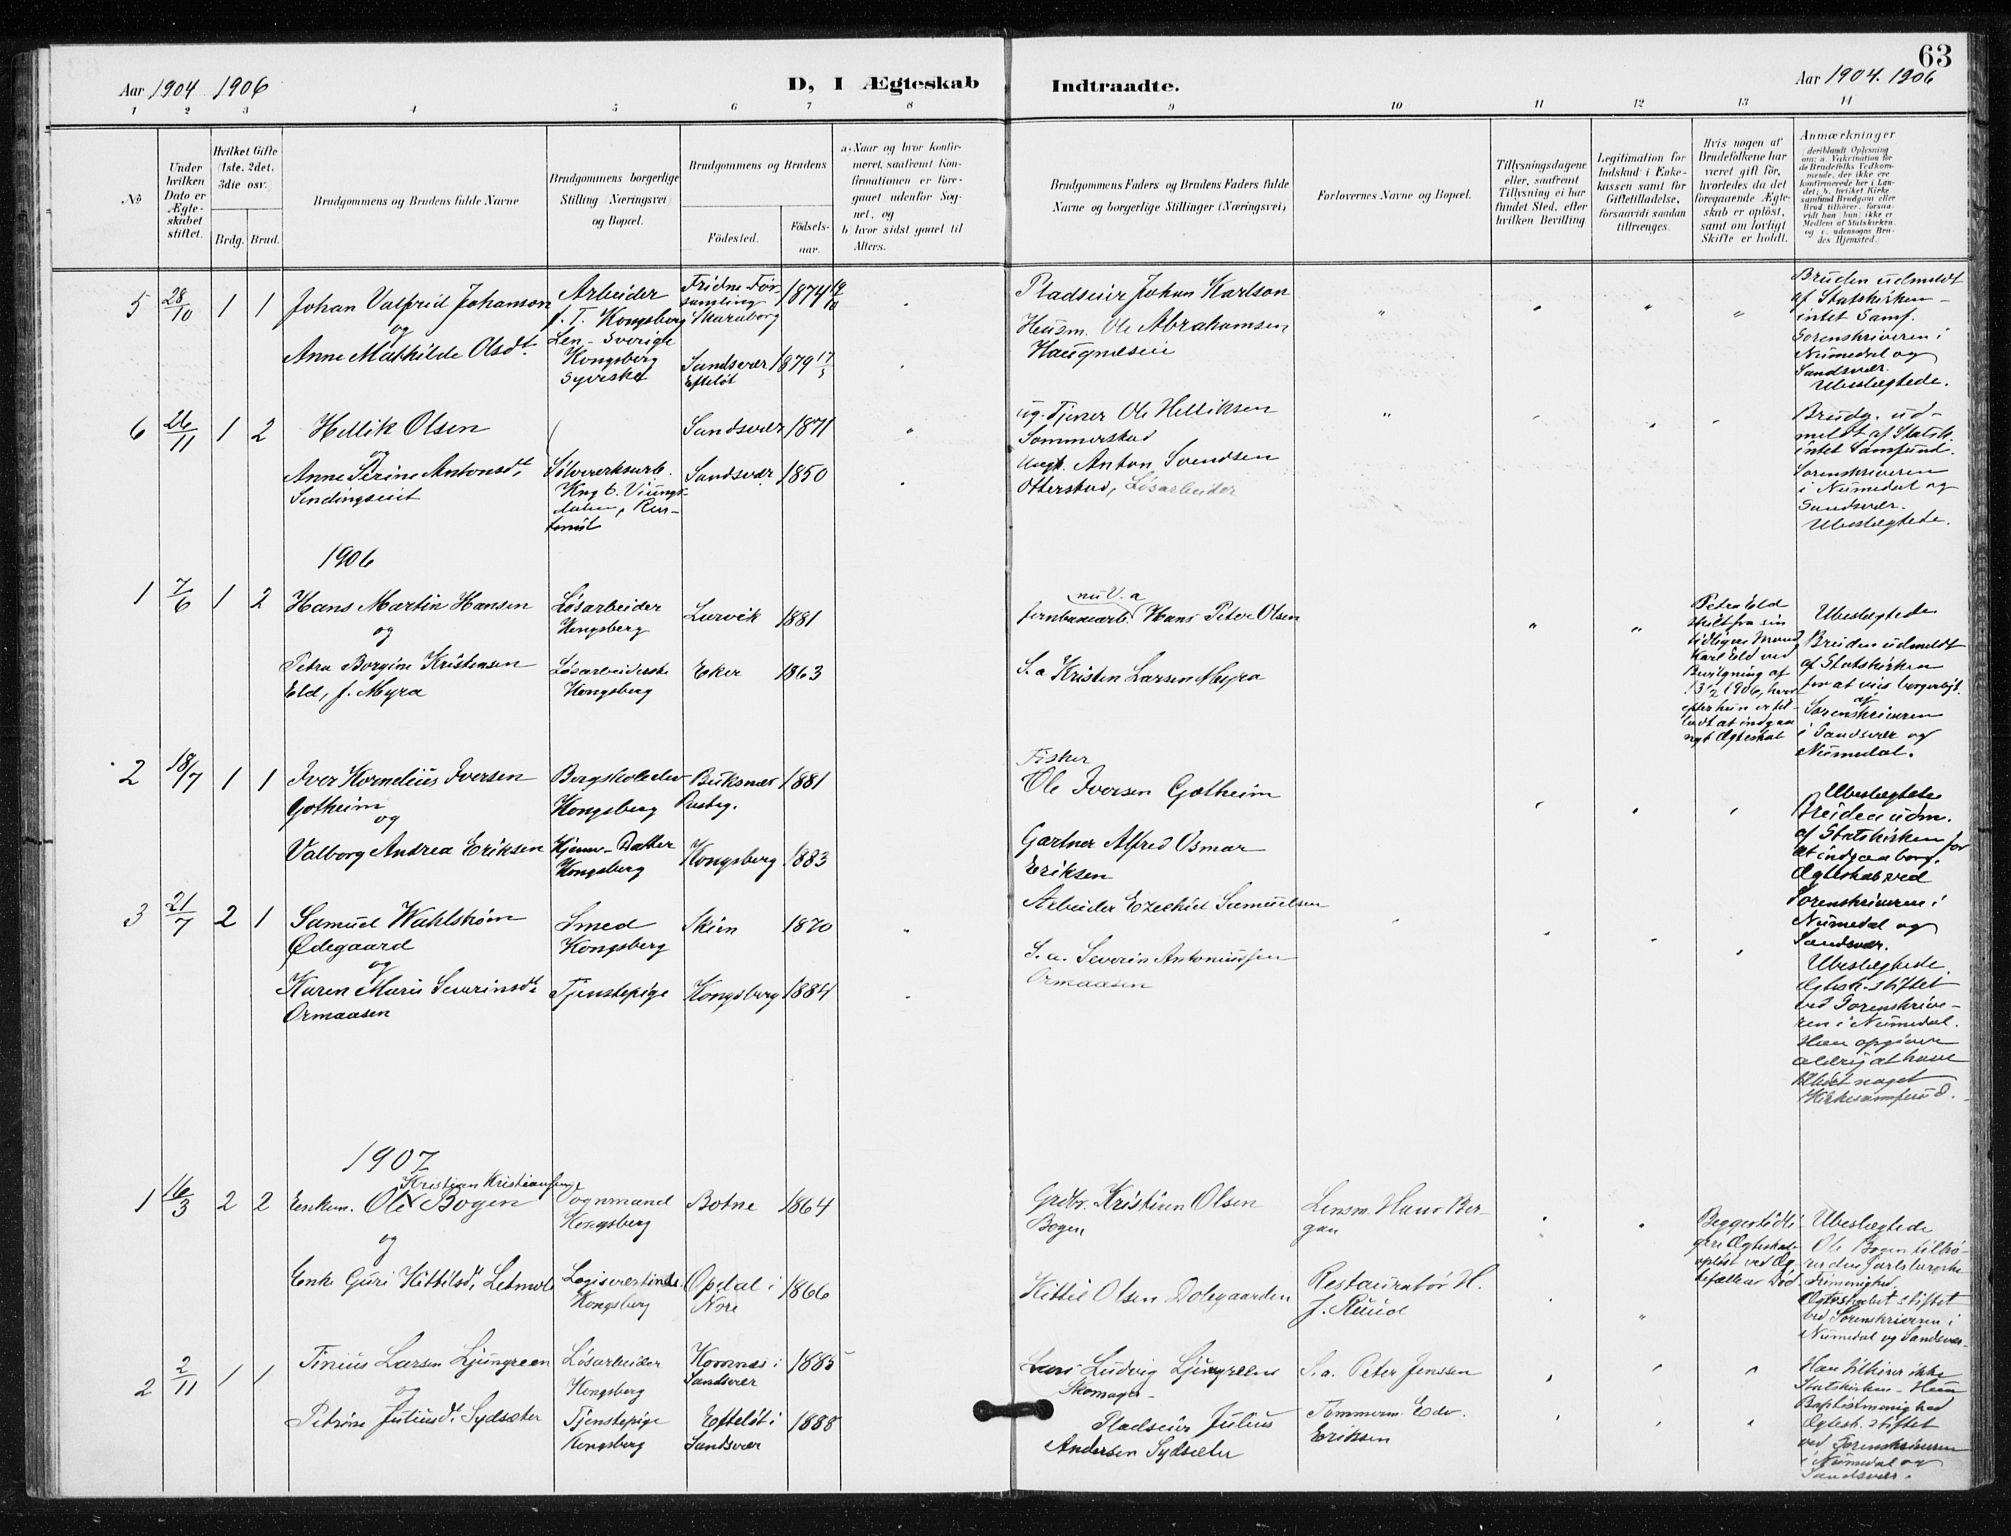 63
Aar 1904 1906
D, I Ægteskab
Indtraadte.
Aar 1904. 1906
1 2 3 4 5 6 7 8 9 10 11 12 13 14
No
Under hvilken Dato er Ægteskabet stiftet.
Hvilket Gifte (1ste, 2det, 3die osv.)
Brdg. Brud.
Brudgommens og Brudens fulde Navne
Brudgommens borgerlige Stilling (Næringsvei) og Bopæl.
Brudgommens og Brudens
Fødested.
Fødselsaar.
a. Naar og hvor konfirmeret, saafremt Konfirmationen er foregaaet udenfor Sognet, og
b. hvor sidst gaaet til Alters.
Brudgommens Faders og Brudens Faders fulde
Navne og borgerlige Stillinger (Næringsvei)
Forlovernes Navne og Bopæl.
Tillysningsdagene eller, saafremt Tillysning ei har fundet Sted, efter hvilken Bevilling
Legitimation for Indskud i Enkekassen samt for Giftetilladelse, forsaavidt saadan tiltrænges.
Hvis nogen af Brudefolkene har været gift før, hvorledes da det foregaaende Ægteskab er opløst, samt om lovligt Skifte er holdt.
Anmærkninger
5 28/10 1 1 Johan Valfrid Johanson
og
Anne Mathilde Olsdt.
Arbeider
f. T. Kongsberg
Len - Sverige
Kongsberg
Syerske
Fridne Forsamling
Skaraborg
1874
Sandsvær
Efteløt
1879 17/5
Pladseier Johan Karlson
Husm. Ole Abrahamsen
Bruden udmeldt
af Statskirken -
intet Samf.
Sorenskriveren i
Numedal og
Sandsvær.
Ubeslægtede.
6 26/11 1 2 Hellik Olsen
og
Anne Sirine Antonsdt.
Sølvverksarb.
Sandsvær 1871
Sandsvær 1850
ug. Tjener Ole Helliksen
Sommerstad
Ungk. Anton Svendsen
Otterstad, Løsarbeider
Brudg. udmeldt af Statsk.
intet Samfund.
Sorenskriveren
i Numedal og
Sandsvær.
Ubeslægtede.
1906
1 7/6 1 2 Hans Martin Hansen
og
Petra Borgine Kristensen
Eld, f. Myra
Løsarbeider
Kongsberg
Løsarbeiderske
Kongsberg
Larvik 1881
Eker 1863
nu V. a
Jernbanearb. Hans Peter Olsen
S. a Kristen Larsen Myra
Petra Eld
skilt fra sin
tidligere Mand
Karl Eld ved
Bevilgning af
13/2 1906, hvorefter hun er tilladt at indgaa
nyt Ægteskab
Ubeslægtede
Bruden udmeldt
af Statskirken
for at vies borgerligt
af
Sorenskriveren
i Sandsvær og
Numedal.
2 18/7 1 1 Iver Kornelius Iversen
Gotheim
og
Valborg Andrea Eriksen
Bergskoleelev
Kongsberg
Hjemv. Datter
Kongsberg
Buksnes
Prestg.
1881
Kongsberg 1883
Fisker
Ole Iversen Gotheim
Gartner Alfred Osmar
Eriksen
Ubeslægtede
Bruden udm.
af Statskirken for
at indgaa borg.
Ægteskab ved
Sorenskriveren i
Numedal og
Sandsvær.
3 21/7 2 1 Samuel Wahlstrøm
Ødegaard
og
Karen Marie Severinsdt.
Ormaasen
Smed
Kongsberg
Tjenstepige
Skien 1870
Kongsberg 1884
Arbeider Ezechiel Samuelsen
S. a. Severin Antoniussen
Ormaasen
Ubeslægtede.
Ægtesk. stiftet
ved Sorenskriveren i Numedal.
Han opgiver
aldrig at have
tilhørt noget
Kirkesamfund.
1907
1 16/3 2 2 Enkem. Ole Bogen
Kristian Kristiansen
og
Enke Guri Kittilsdt.
Vognmand
Kongsberg
Logisvertinde
Kongsberg
Botne 1864
Opdal i
Nore
1866
Grdbr. Kristian Olsen
Bogen
Kittil Olsen Dolegaarden
Lensm. Hans Bergan
Restauratør H.
J. Ruud
Begges tidligere Ægteskab
opløst ved Ægtefælles Død
Ubeslægtede
Ole Bogen tilhører den Jarlsbergske
Frimenighed.
Ægteskabet stiftet
ved Sorenskriveren i
Numedal og Sandsvær.
2 2/11 1 1 Tinius Larsen Ljungreen
og
Petrine Juliusdt. Sydsæter
Løsarbeider
Kongsberg
Tjenstepige
Kongsberg
Komnes i
Sandsvær
1885
Efteløt i
Sandsvær
1888
Lars Ludvig Ljungreen
Skomager
Pladseier Julius
Andersen Sydsæter
S. a. Peter Jenssen
Tømmerm. Edv.
Eriksen
Han tilhører ikke
Statskirken - Hun
Baptistmenighed
Ægtesk. stiftet
ved Sorenskriveren
i Numedal og
Sandsvær.